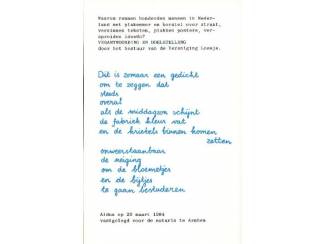 Waarom rennen honderden mensen in Neder-
land met plakemmer en borstel over straat,
verzinnen teksten, plakken posters, ver-
spreiden loesds?
VERANTWOORDING EN DOELSTELLING
door het bestuur van de Vereniging Loesje.
Dit is zomaar een gedicht
om te zeggen dat
steeds
overal
als de middagzon schijnt
de fabriek kleur vat
en de kriebels binnen komen
zetten
onweerstaanbaar
de neiging
om de bloemetjes
en de bijtjes
te gaan bestuderen
Aldus op 20 maart 1984
vastgelegd voor de notaris te Arnhem